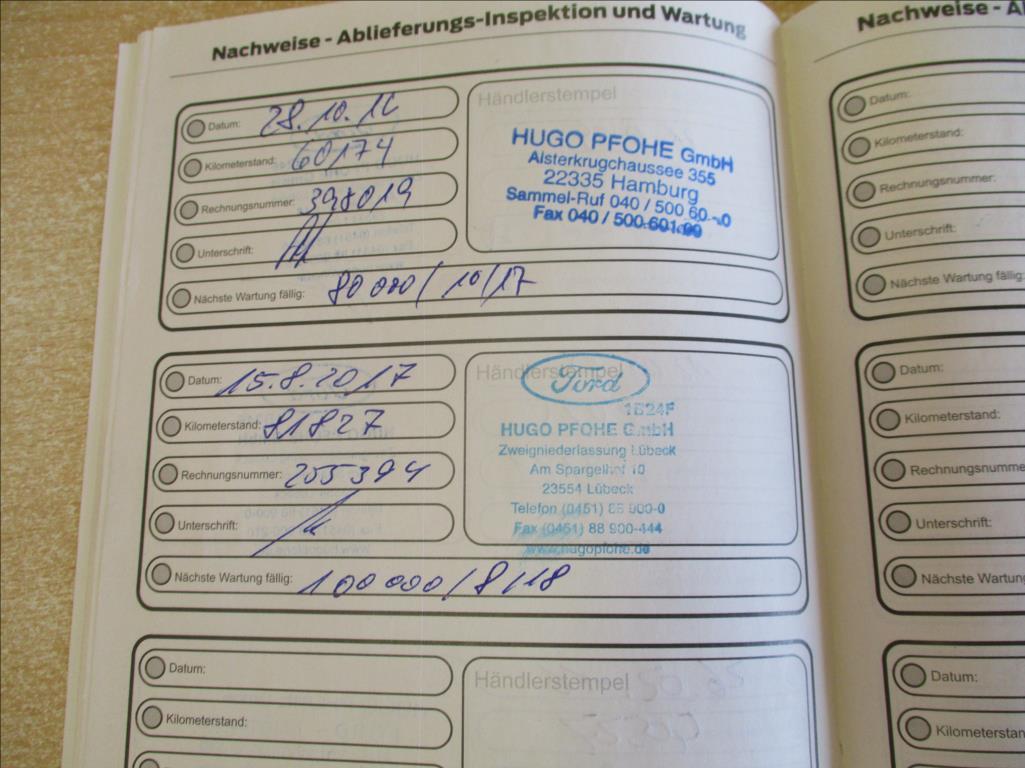 Nachweise - Ablieferungs-Inspektion und Wartung
Datum: 28.10.16
Kilometerstand: 60174
Rechnungsnummer: 398019
Unterschrift:
Nächste Wartung fällig: 80 000 / 10/17
Händlerstempel
HUGO PFOHE GmbH
Alsterkrugchaussee 355
22335 Hamburg
Sammel-Ruf 040 / 500 60 -0
Fax 040 / 500 601 99
Datum: 15.8.2017
Kilometerstand: 81827
Rechnungsnummer: 205394
Unterschrift:
Nächste Wartung fällig: 100 000 / 8/18
Händlerstempel
Ford
1B24F
HUGO PFOHE GmbH
Zweigniederlassung Lübeck
Am Spargelhof 10
23554 Lübeck
Telefon (0451) 88 900-0
Fax (0451) 88 900-444
www.hugopfohe.de
Datum:
Kilometerstand:
Händlerstempel
Nachweise -
Datum:
Kilometerstand:
Rechnungsnummer:
Unterschrift:
Nächste Wartung fällig:
Datum:
Kilometerstand:
Rechnungsnumme
Unterschrift:
Nächste Wartung
Datum:
Kilometerstan